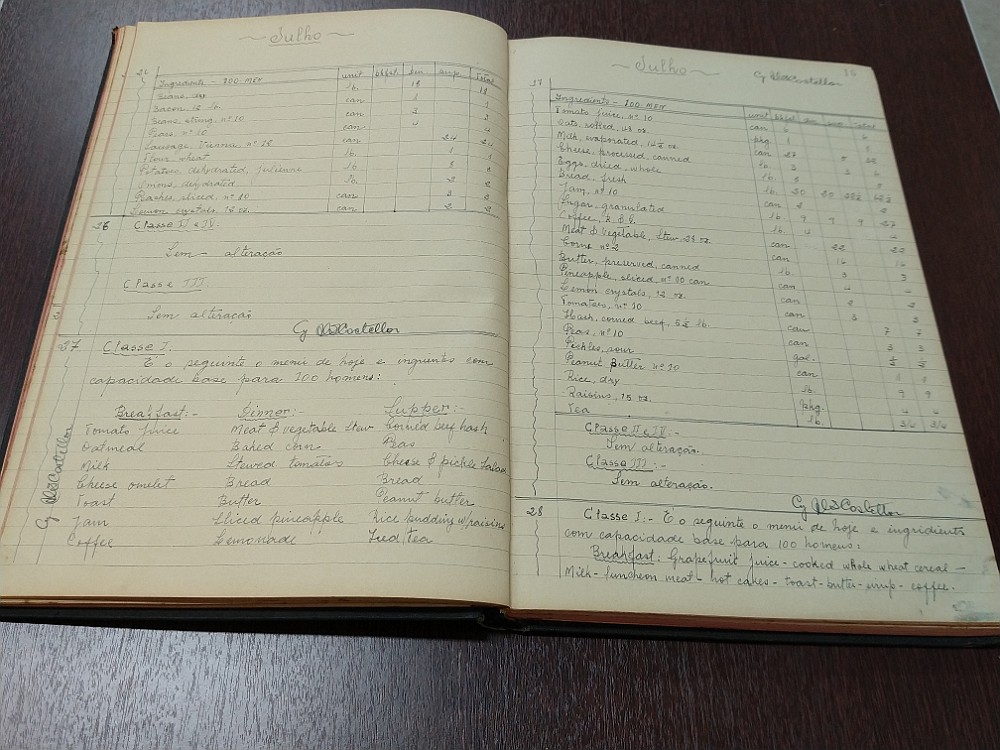 ~ Julho ~
Ingredients - 100-MEN unit bkfst. din supp. Total
Beans, dry lb. 18 18
Bacon, 12 lb. can 1 1
Beans, string, nº 10 can 3 3
Peas, nº 10 can 4 4
Sausage, Vienna, nº 18 can 24 24
Flour, wheat lb. 1 1
Potatoes, dehydrated, julienne lb. 8 8
Onions, dehydrated lb. 2 2
sliced, nº 10 can 3 3
Lemon crystals, 12 oz. can 2 2
26 Classe II e IV.
Sem alteração
Classe III
Sem alteração
27 Classe I.
É o seguinte o menú de hoje e com
capacidade base para 100 homens:
Breakfast:- Dinner:- Supper:-
Tomato juice Meat & vegetable stew Corned beef hash
Oatmeal Baked corn Peas
Milk Stewed tomatoes Cheese & pickle salad
Cheese omelet Bread Bread
Toast Butter Peanut butter
Jam Sliced pineapple Rice pudding w/raisins
Coffee Lemonade Iced tea
~ Julho ~
27
Ingredients - 100-MEN unit bkfst din supp. Total
Tomato juice, nº 10 can 6 6
Oats, rolled, 48 oz. pkg 1
Milk, evaporated, 14½ oz. can 27
Cheese, processed, canned lb. 3 3 6
Eggs, dried, whole lb.
Bread, fresh lb. 20 20
Jam, nº 10 can 2 2
Sugar, granulated lb. 9 9 9 27
Coffee, R. & G. lb. 4
Meat & vegetable, stew can 22 22
Corn nº 2 can
Butter, preserved, canned lb. 3 3
Pineapple, sliced, nº 10 can can
Lemon crystals, 12 oz. can 2 2
Tomatoes, nº 10 can 3 3
Hash, corned beef, 5½ lb. can 7 7
Peas, nº 10 can 3 3
Pickles, sour gal. ½ ½
Peanut butter nº 10 can 1 1
Rice, dry lb. 9 9
Raisins, 15 oz. pkg. 4 4
Tea lb. 3/4 3/4
Classe II e IV:-
Sem alteração.
Classe III:-
Sem alteração.
28 Classe I:- É o seguinte o menú de hoje e
com capacidade base para 100 homens:
Breakfast: Grapefruit juice - cooked whole wheat cereal -
Milk - luncheon meat - hot cakes - toast - butter - sirup - coffee.